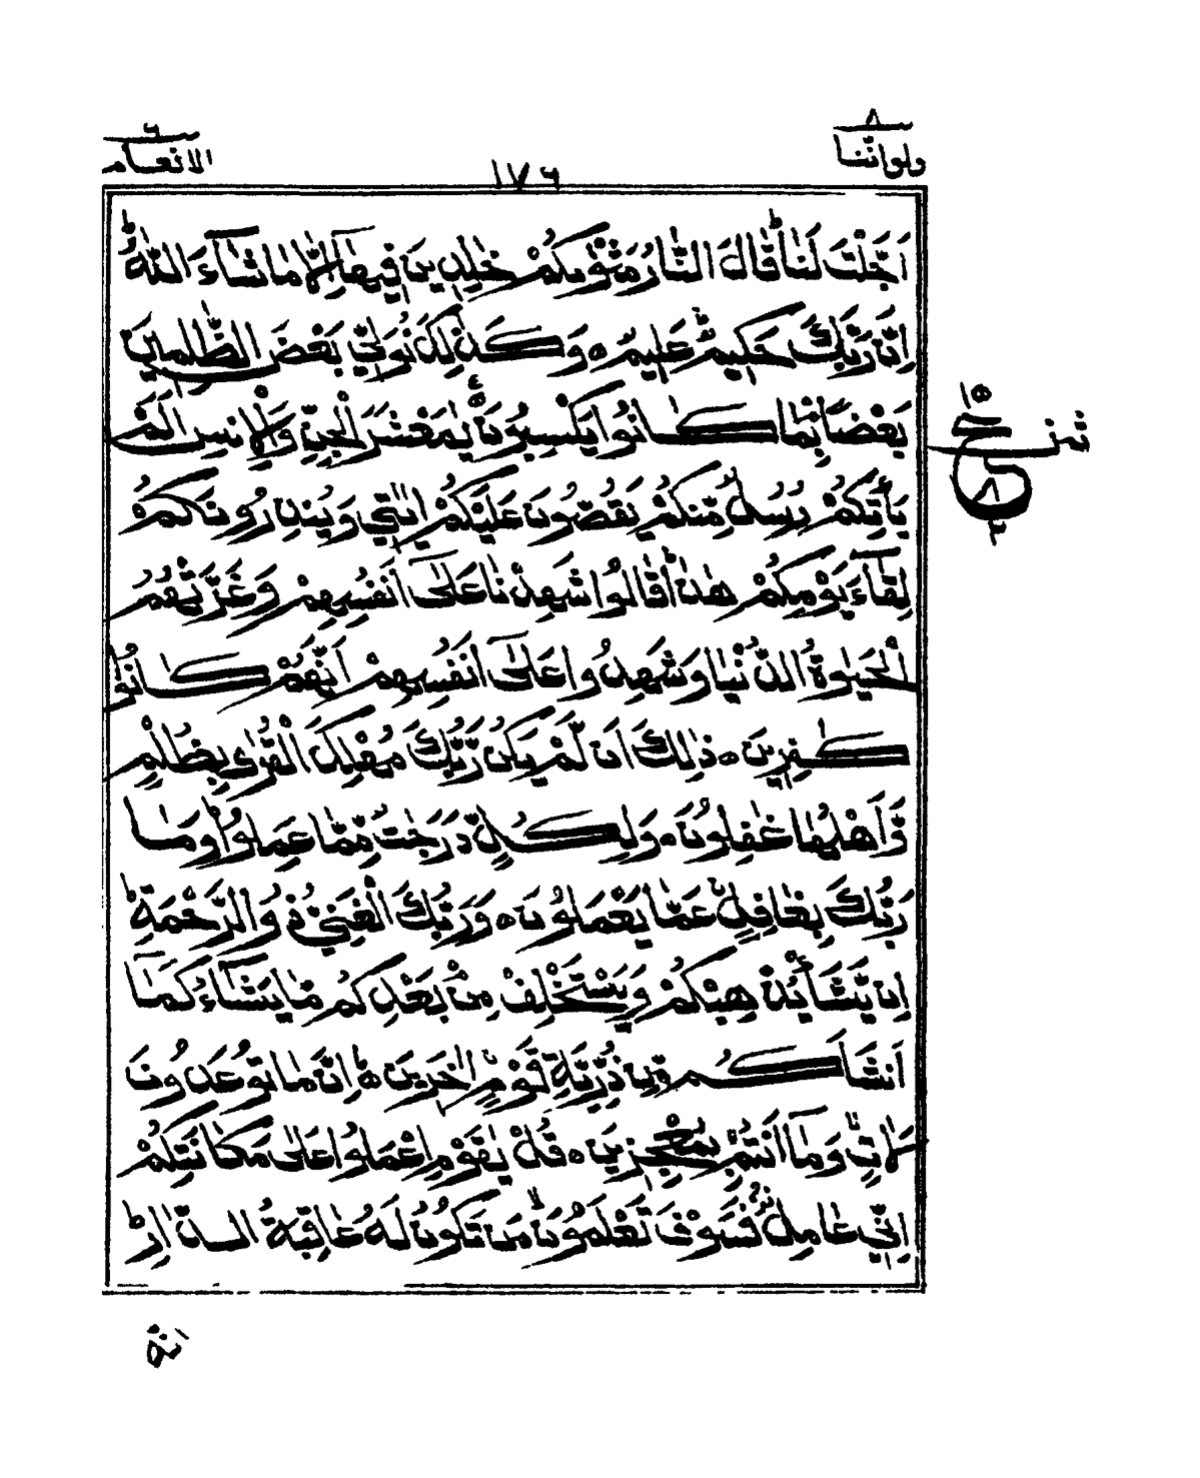 ولواننا ٨
١٧٦
الانعام ٦
اَجَّلْتَ لَنَا ؕ قَالَ النَّارُ مَثْوٰىكُمْ خٰلِدِيْنَ فِيْهَاۤ اِلَّا مَا شَآءَ اللّٰهُ ؕ
اِنَّ رَبَّكَ حَكِيْمٌ عَلِيْمٌ ۝ وَكَذٰلِكَ نُوَلِّيْ بَعْضَ الظّٰلِمِيْنَ
بَعْضًۢا بِمَا كَانُوْا يَكْسِبُوْنَ ۝ يٰمَعْشَرَ الْجِنِّ وَالْاِنْسِ اَلَمْ
يَاْتِكُمْ رُسُلٌ مِّنْكُمْ يَقُصُّوْنَ عَلَيْكُمْ اٰيٰتِيْ وَيُنْذِرُوْنَكُمْ
لِقَآءَ يَوْمِكُمْ هٰذَا ؕ قَالُوْا شَهِدْنَا عَلٰۤى اَنْفُسِهِمْ وَغَرَّتْهُمُ
الْحَيٰوةُ الدُّنْيَا وَشَهِدُوْا عَلٰۤى اَنْفُسِهِمْ اَنَّهُمْ كَانُوْا
كٰفِرِيْنَ ۝ ذٰلِكَ اَنْ لَّمْ يَكُنْ رَّبُّكَ مُهْلِكَ الْقُرٰى بِظُلْمٍ
وَّاَهْلُهَا غٰفِلُوْنَ ۝ وَلِكُلٍّ دَرَجٰتٌ مِّمَّا عَمِلُوْا ؕ وَمَا
رَبُّكَ بِغَافِلٍ عَمَّا يَعْمَلُوْنَ ۝ وَرَبُّكَ الْغَنِيُّ ذُو الرَّحْمَةِ ؕ
اِنْ يَّشَاْ يُذْهِبْكُمْ وَيَسْتَخْلِفْ مِنْۢ بَعْدِكُمْ مَّا يَشَآءُ كَمَاۤ
اَنْشَاَكُمْ مِّنْ ذُرِّيَّةِ قَوْمٍ اٰخَرِيْنَ ۝ اِنَّ مَا تُوْعَدُوْنَ
لَاٰتٍ وَّمَاۤ اَنْتُمْ بِمُعْجِزِيْنَ ۝ قُلْ يٰقَوْمِ اعْمَلُوْا عَلٰى مَكَانَتِكُمْ
اِنِّيْ عَامِلٌ ۚ فَسَوْفَ تَعْلَمُوْنَ ۙ مَنْ تَكُوْنُ لَهٗ عَاقِبَةُ الدَّارِ ؕ
١٥
ع
٨
٢
انه